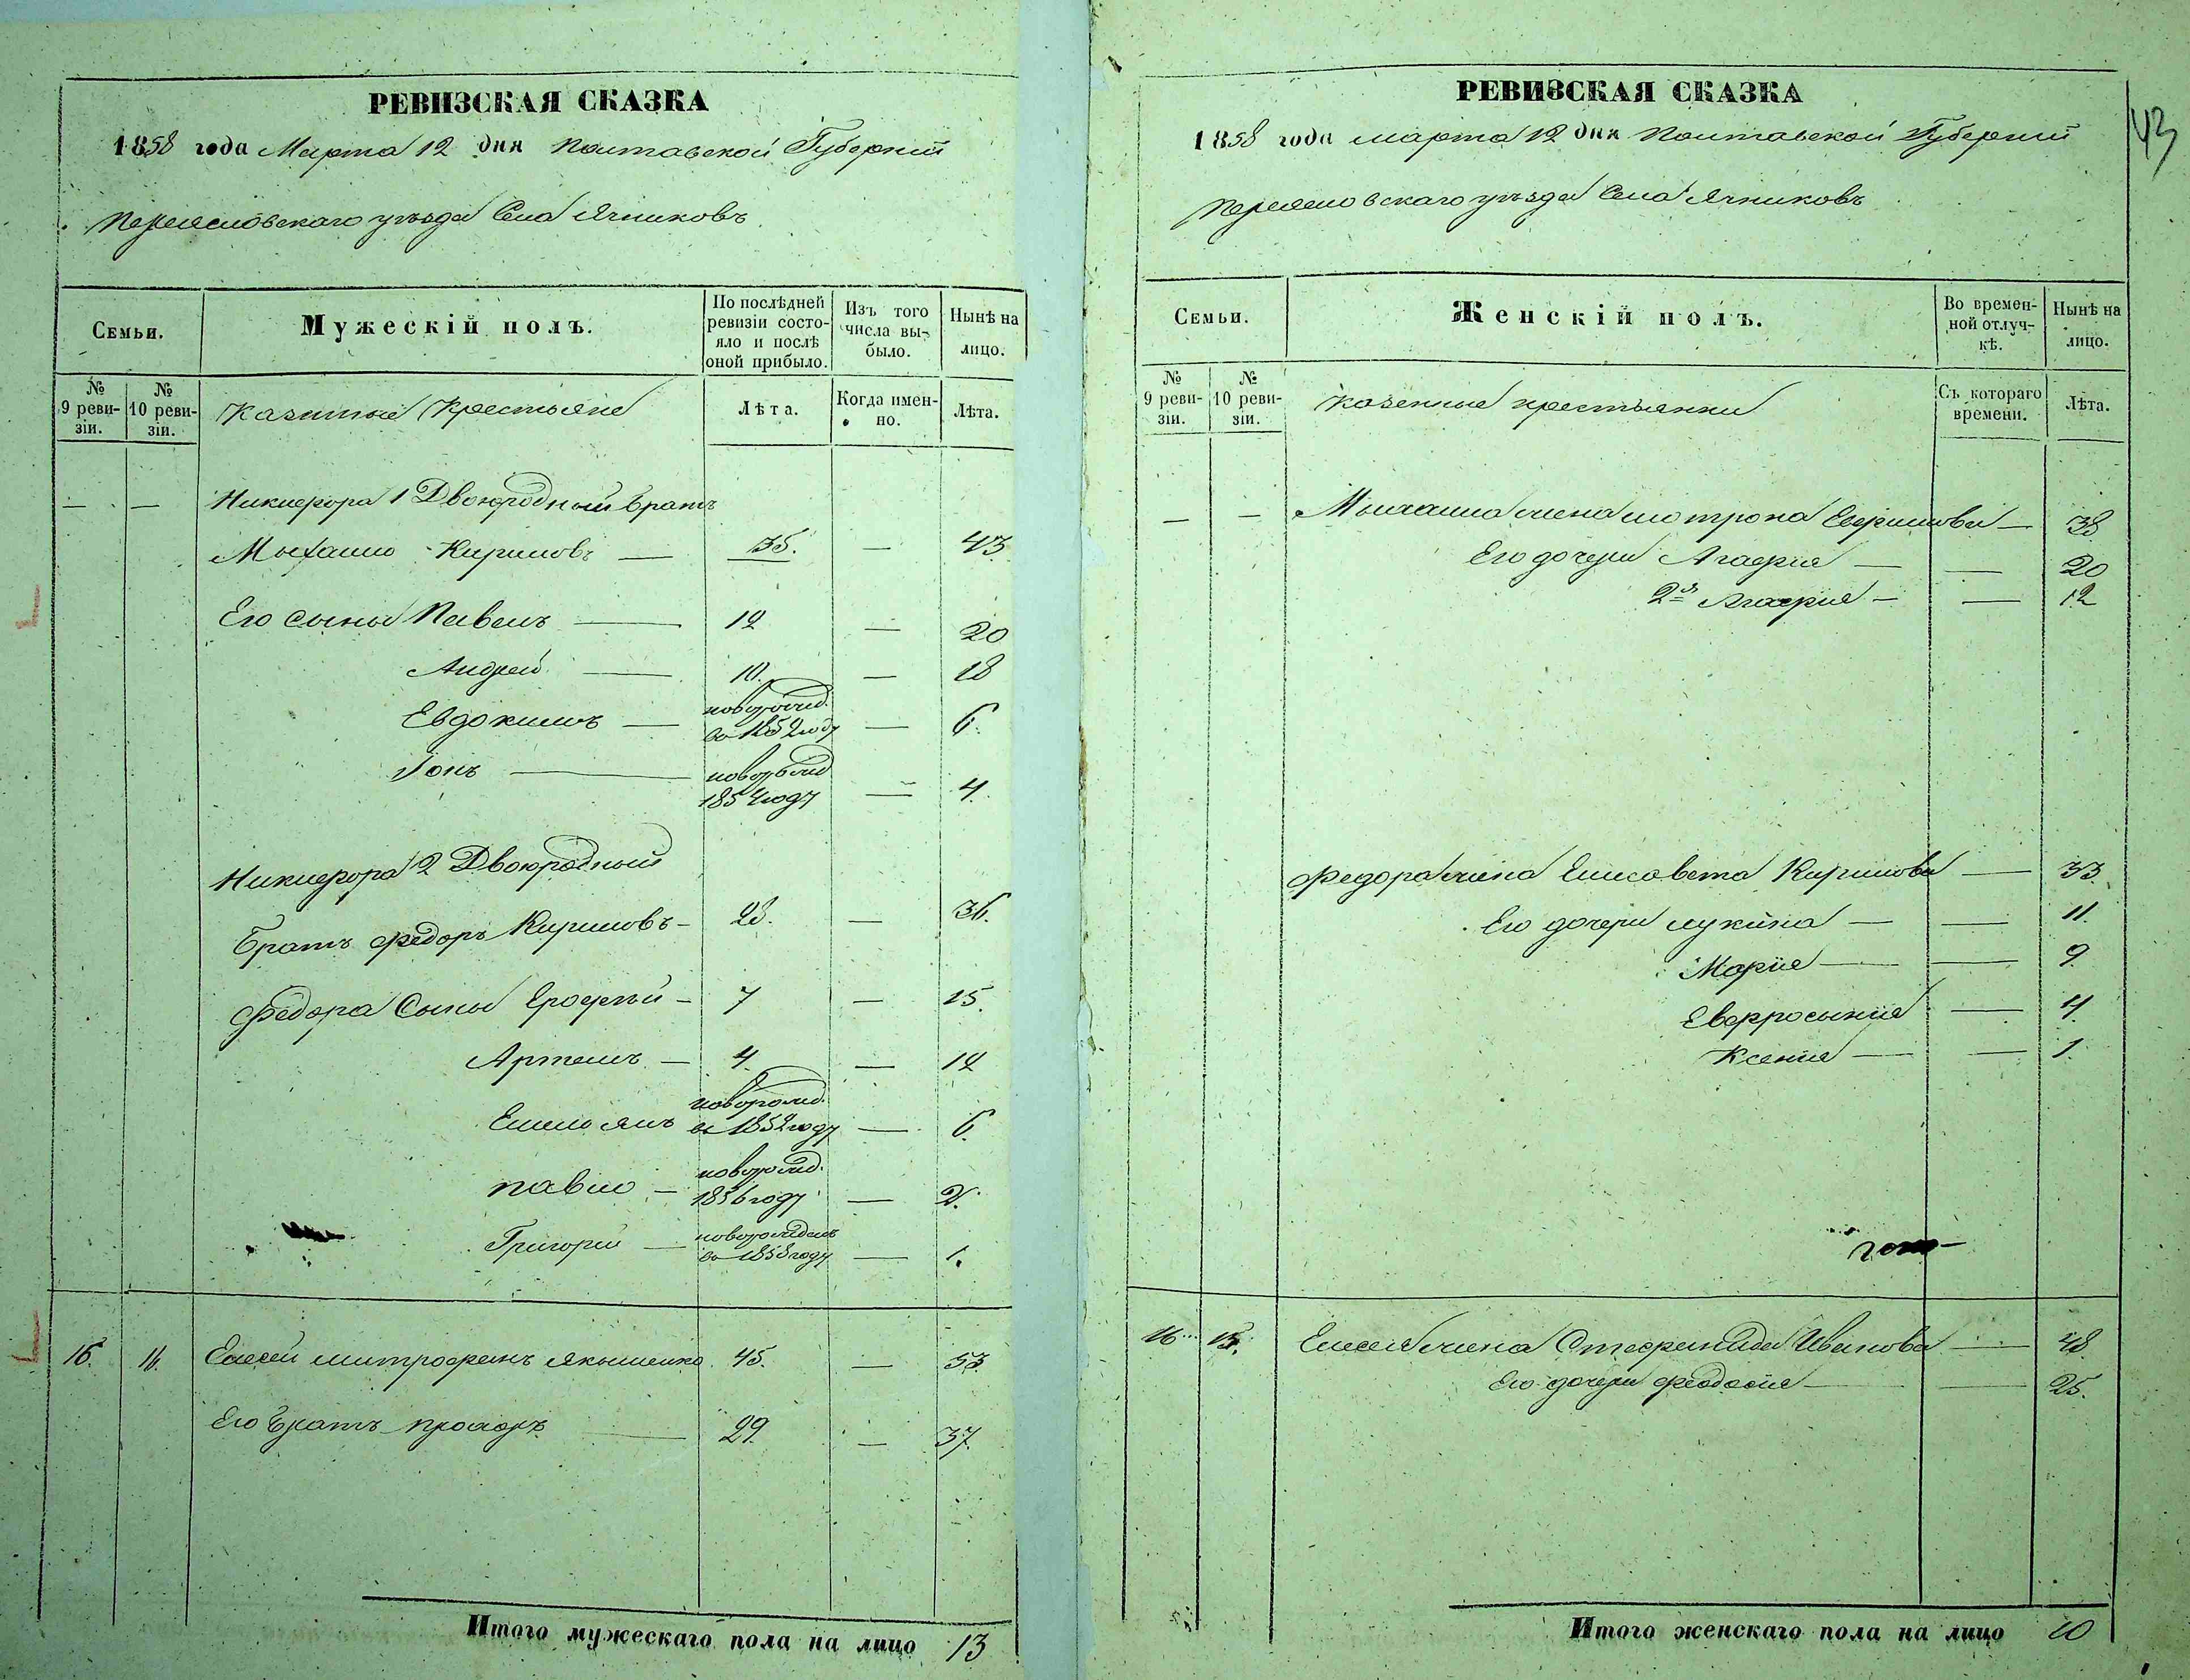 РЕВИЗСКАЯ СКАЗКА
1858 года Марта 12 дня Полтавской Губернии
Переясловскаго уѣзда Села Ячниковъ
Семьи.
Мужескій полъ.
По послѣдней ревизіи состояло и послѣ оной прибыло.
Изъ того числа выбыло.
Нынѣ на лицо.
№ 9 ревизіи.
№ 10 ревизіи.
Казенные Крестьяне
Лѣта.
Когда именно.
Лѣта.
— — Никифора 1 Двоюродный братъ
Михайло Кириловъ — 35. — 43
Его сыны Павелъ — 12 — 20
Андрей — 10. — 18
Евдокимъ — новорожд. въ 1852 году — 6.
Іонъ — новорожд 1854 году — 4.
Никифора 2 Двоюродный
Братъ Федоръ Кириловъ — 28. — 36.
Федора Сыны Ерофѣй — 7 — 15.
Артемъ — 4. — 12
Емелоянъ новорожд. въ 1852 году — 6.
Павло — новорожд. 1856 году — 2.
Григорій — новорожденъ въ 1858 году — 1.
16. 16. Елесей Митрофанъ Якышенко 45. — 53.
Его Братъ Прохоръ — 29. — 37.
Итого мужескаго пола на лицо 13
РЕВИЗСКАЯ СКАЗКА
43
1858 года Марта 12 дня Полтавской Губерніи
Переясловскаго уѣзда Села Ячниковъ
Семьи.
Женскій полъ.
Во временной отлучкѣ.
Нынѣ на лицо.
№ 9 ревизіи.
№ 10 ревизіи.
Казенные крестьянки
Съ котораго времени.
Лѣта.
— — Михайла жена Мотрона — 38
Его дочери Агафия — — 20
2я Агафия — — 12
Федора жена Елисавета Кирилова — 33.
Его дочери Лукина — — 11.
Марія — — 9.
Евфросынія — 4.
Ксения — — 1.
16 Елесея жена Стефанида Иванова — 48.
Его дочери Феодосія — — 25.
Итого женскаго пола на лицо 10